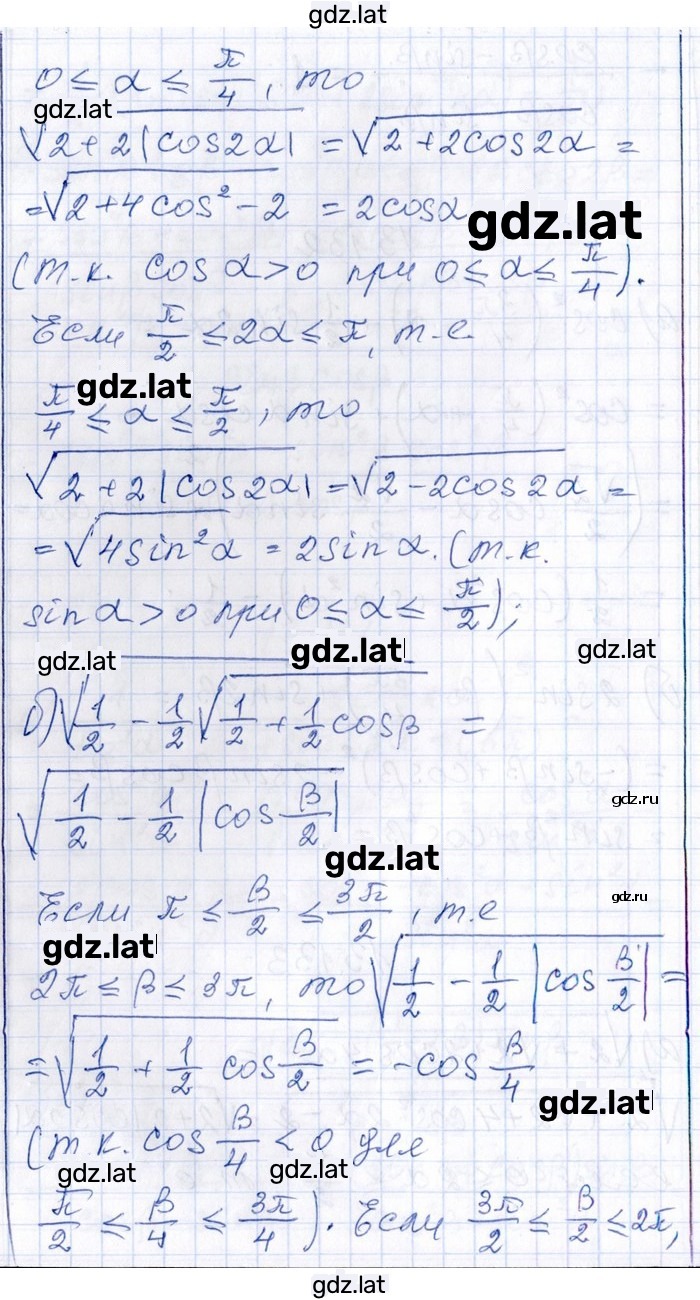 gdz.lat
0 ≤ α ≤ π/4, то
gdz.lat
√(2+2|cos2α|) = √(2+2cos2α) =
=√(2+4cos²-2) = 2cosα
gdz.lat
(т.к. cosα>0 при 0≤α≤π/4).
Если π/2 ≤2α≤π, т.е.
gdz.lat
π/4 ≤ α ≤ π/2, то
√(2+2|cos2α|) = √(2-2cos2α) =
= √(4sin²α) = 2sinα. (т.к.
sinα>0 при 0≤α≤ π/2);
gdz.lat gdz.lat gdz.lat
б) √(1/2 - 1/2 √(1/2 + 1/2 cosβ)) =
√(1/2 - 1/2 |cos β/2|)
gdz.ru
gdz.lat
Если π ≤ β/2 ≤ 3π/2, т.е
gdz.ru
gdz.lat
2π ≤ β ≤ 3π, то √(1/2 - 1/2 |cos β/2|) =
= √(1/2 + 1/2 cos β/2) = -cos β/4
gdz.lat
(т.к. cos β/4 < 0 для
gdz.lat gdz.lat
π/2 ≤ β/4 ≤ 3π/4). Если 3π/2 ≤ β/2 ≤2π,
gdz.lat